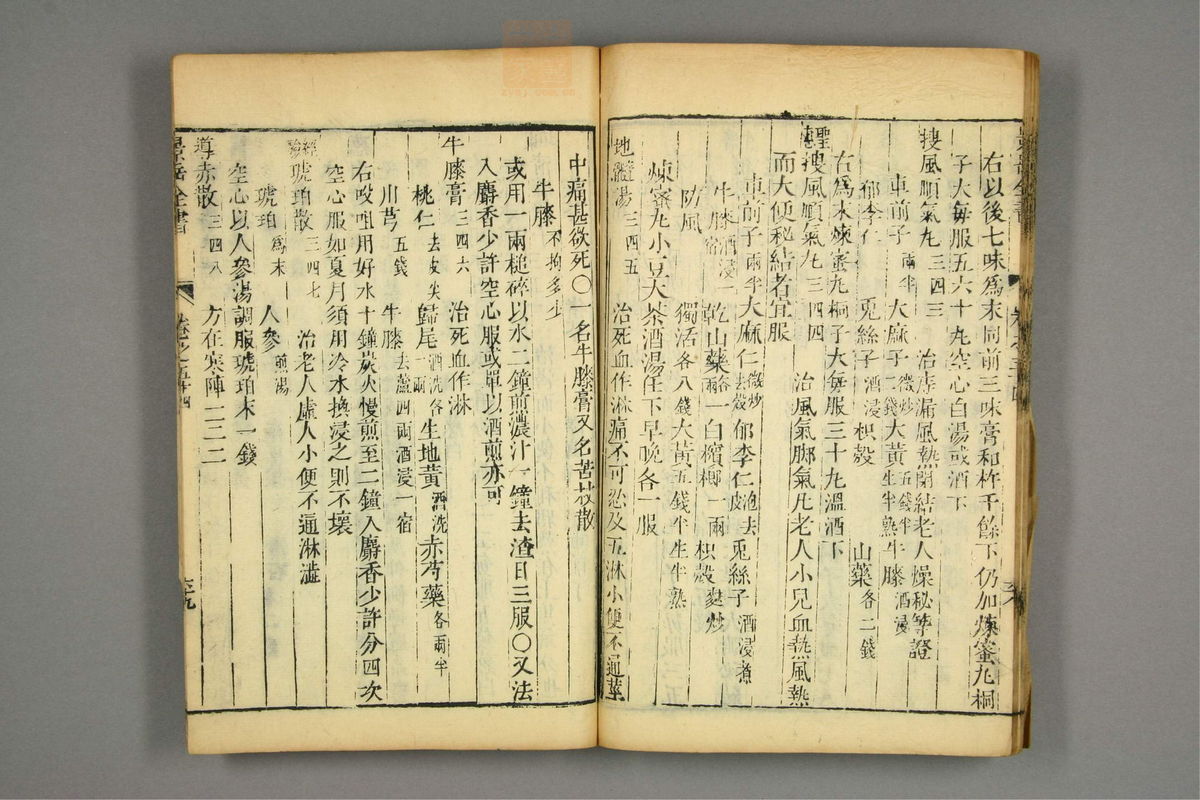 右以後七味爲末同前三味膏和杵千餘下仍加煉蜜丸桐
子大每服五六十丸空心白湯或酒下
搜風順氣丸三四三 治痔漏風熱閉結老人燥秘等證
車前子兩半 大麻子微炒二錢 大黃五錢半生半熟 牛膝酒浸
郁李仁 兎絲子酒浸 枳殼 山藥各二錢
右爲末煉蜜丸桐子大每服三十丸溫酒下
聖惠搜風順氣丸三四四 治風氣脚氣凡老人小兒血熱風熱
而大便秘結者宜服
車前子兩半 大麻仁微炒去殼 郁李仁泡去皮 兎絲子酒浸煮
牛膝酒浸一宿 乾山藥各二兩 白檳榔一兩 枳殼麩炒
防風 獨活各八錢 大黃五錢半生半熟
煉蜜丸小豆大茶酒湯任下早晚各一服
地髓湯三四五 治死血作淋痛不可忍及五淋小便不通莖
中痛甚欲死○一名牛膝膏又名苦杖散
牛膝不拘多少
或用一兩槌碎以水二鐘煎濃汁一鐘去渣日三服○又法
入麝香少許空心服或單以酒煎亦可
牛膝膏三四六 治死血作淋
桃仁去皮尖 歸尾酒洗各一兩 生地黃酒洗 赤芍藥各兩半
川芎五錢 牛膝去蘆四兩酒浸一宿
右㕮咀用好水十鐘炭火慢煎至二鐘入麝香少許分四次
空心服如夏月須用冷水換浸之則不壞
經驗琥珀散三四七 治老人虛人小便不通淋澁
琥珀爲末 人參煎湯
空心以人參湯調服琥珀末一錢
導赤散三四八 方在寒陣一二二
景岳全書 卷之五十四 六九